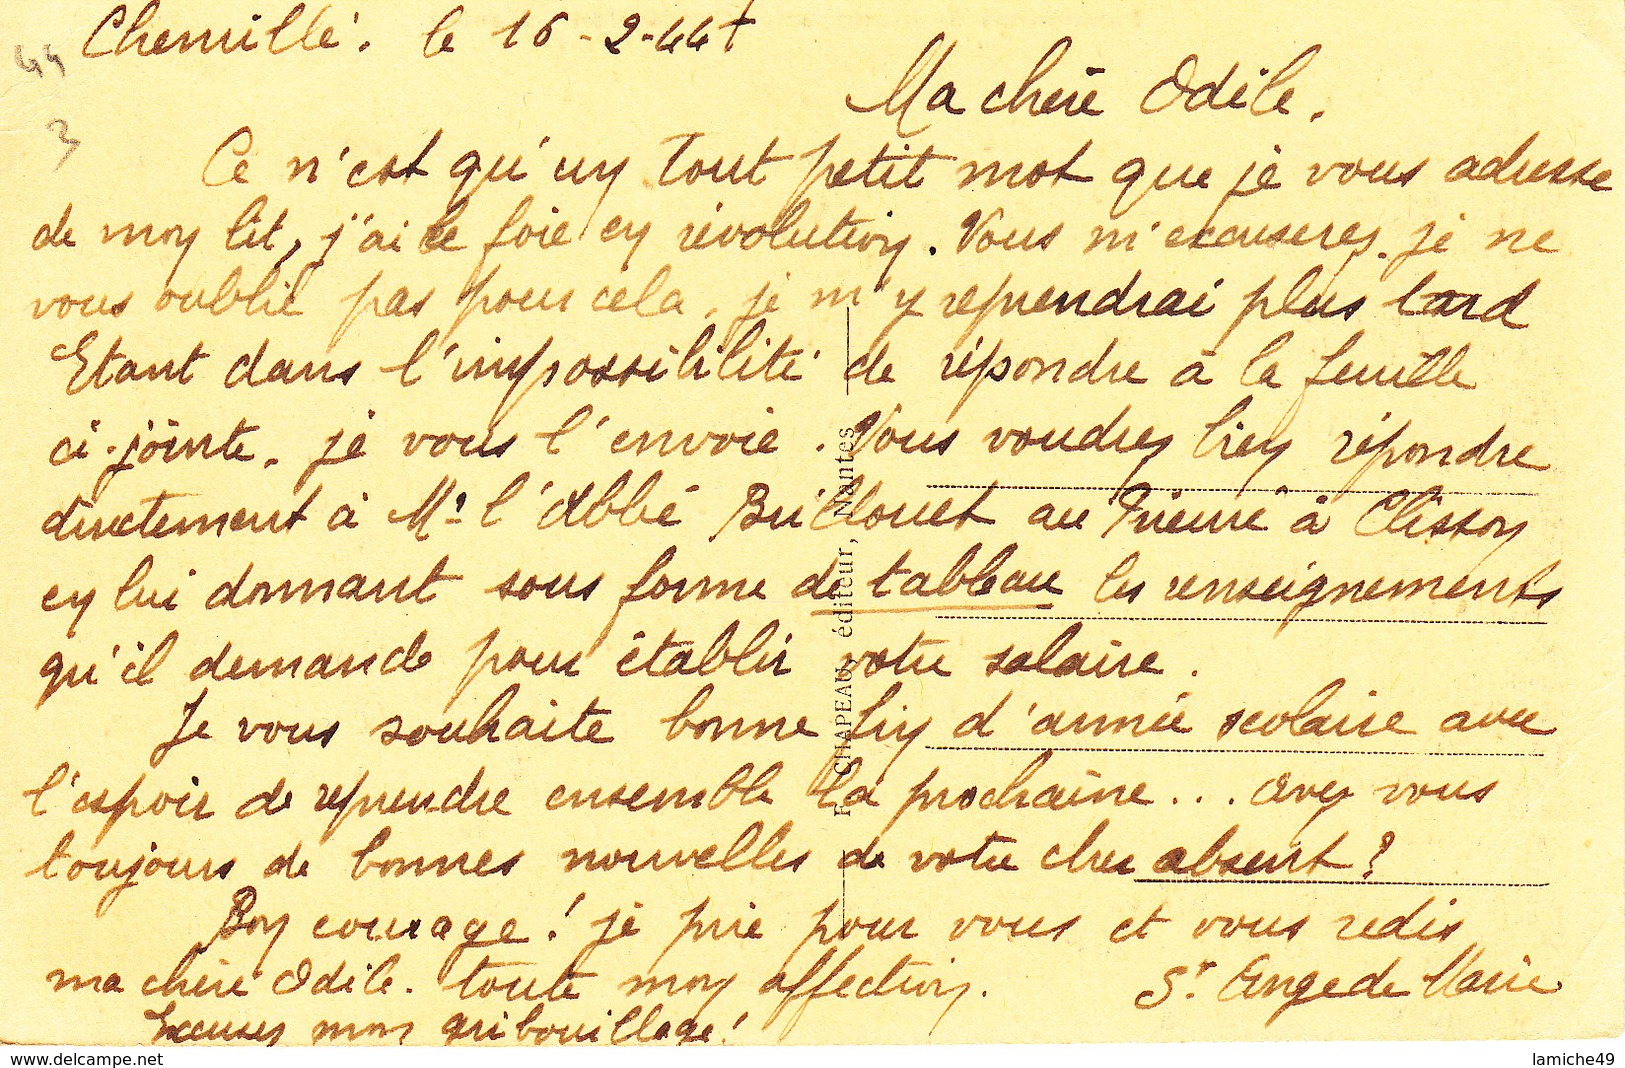 Chemillé. le 16-2-44 †
44
3
Ma chère Odile.
Ce n'est qu'un tout petit mot que je vous adresse
de mon lit, j'ai le foie en révolution. Vous m'excuserez. je ne
vous oublie pas pour cela. je m'y reprendrai plus tard
Etant dans l'impossibilité de répondre à la feuille
ci-jointe. je vous l'envoie. Vous voudrez bien répondre
directement à Mr l'Abbé Brillouet au Prieuré à Clisson
en lui donnant sous forme de tableau les renseignements
qu'il demande pour établir votre salaire.
Je vous souhaite bonne fin d'année scolaire avec
l'espoir de reprendre ensemble la prochaine... avez vous
toujours de bonnes nouvelles de votre cher absent?
Bon courage! je prie pour vous et vous redis
ma chère Odile. toute mon affection. Sr Ange de Marie
Excusez mon gribouillage!
F. CHAPEAU, éditeur, Nantes
delcampe.net
lamiche49